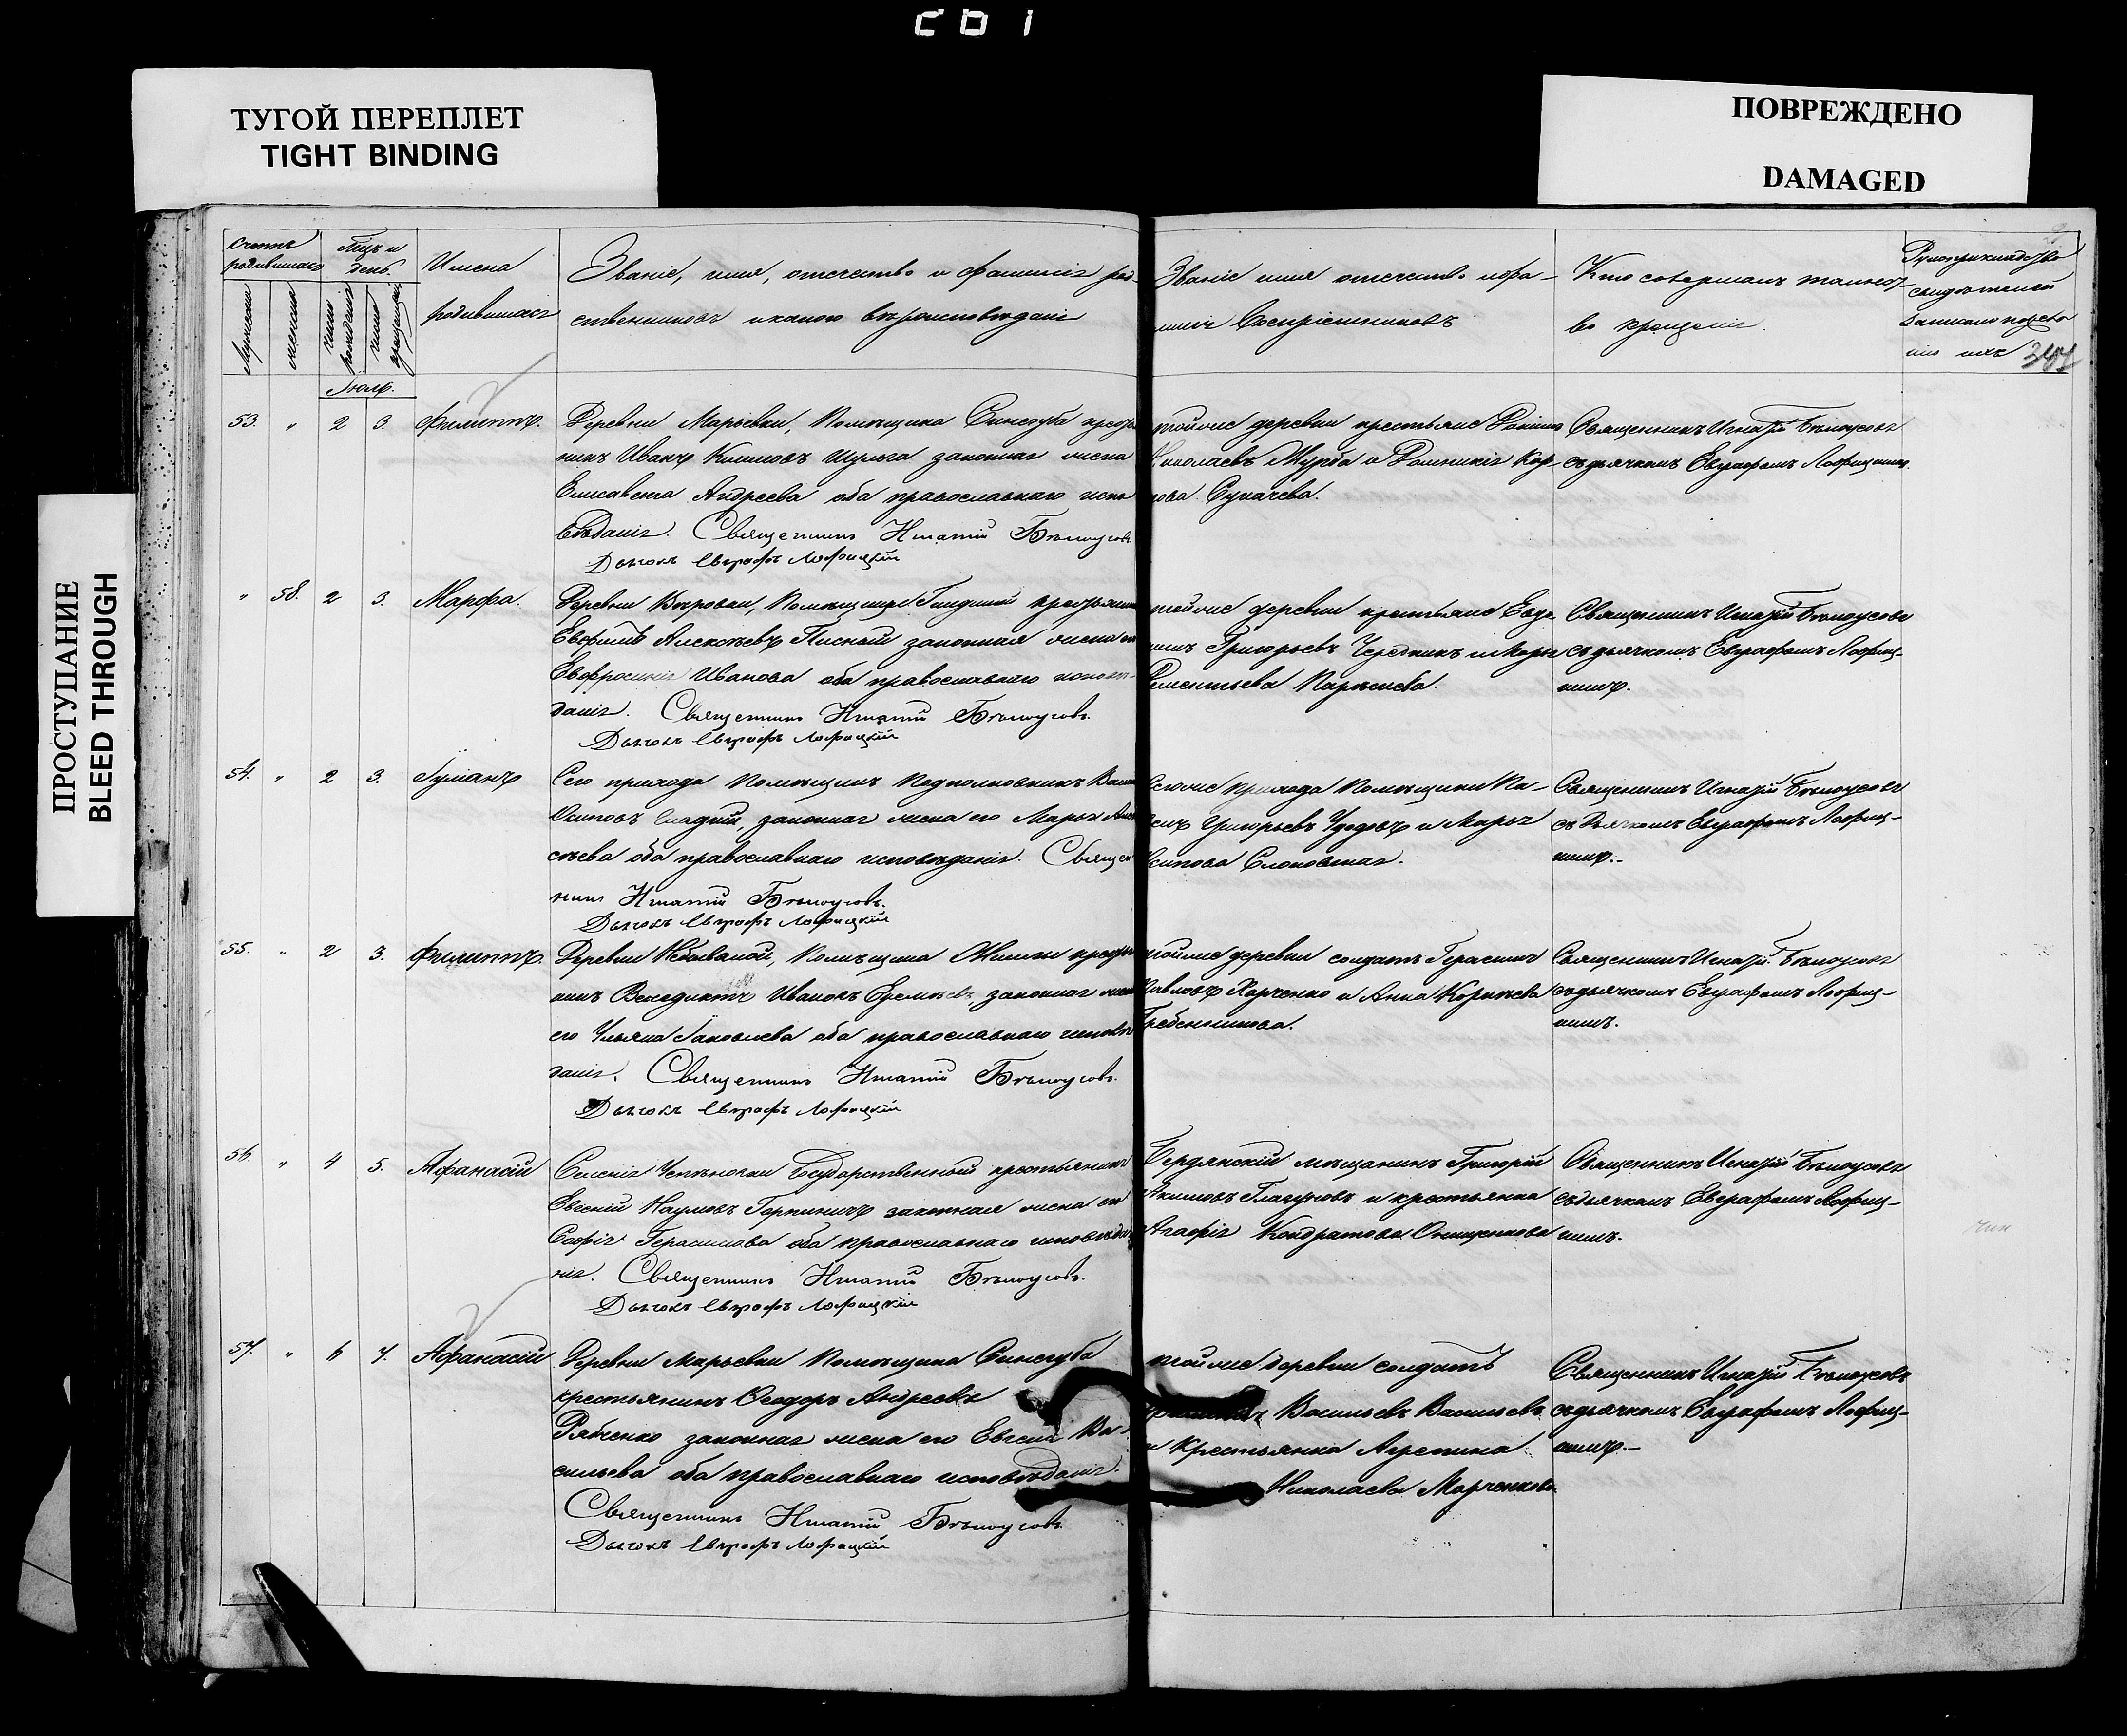 ТУГОЙ ПЕРЕПЛЕТ
TIGHT BINDING
ПОВРЕЖДЕНО
DAMAGED
ПРОСТУПАНИЕ
BLEED THROUGH
Счетъ родившихся
Мужеска
женска
Мцъ и день
число рожденія
число крещенія
Имена
родившихся
Званіе, имя, отечество и фамилія род-
ственниковъ и какого вѣроисповѣданія
Званіе имя отечество и фа-
милія Воспріемниковъ
Кто совершалъ таинст-
во крещенія.
Рукоприкладство
свидѣтелей
записи по
Іюль.
53. " 2 3. Филиппъ.
Деревни Марьевки, Помѣщика Синегуба крестья
нинъ Иванъ Климовъ Шульга законная жена
Елисавета Андреева оба православнаго испо
вѣданія. Священникъ Игнатій Бѣлоусовъ
Дьячокъ Евграфъ Лофицкій
тойже деревни крестьяне
Николаевъ Журба и
Сукачева.
Священникъ Игнатій Бѣлоусовъ
съ дьячкомъ Евграфомъ Лофицкимъ.
" 58. 2 3. Марфа.
Деревни Вѣровки, Помѣщицы крестьянинъ
Евфимъ Алексѣевъ Писный законная жена его
Евфросинія Иванова оба православнаго исповѣ-
данія. Священникъ Игнатій Бѣлоусовъ.
Дьячокъ Евграфъ Лофицкій
тойже деревни крестьяне Евдо
кимъ Григорьевъ Чередникъ и Марья
Клементьева
Священникъ Игнатій Бѣлоусовъ
съ дьячкомъ Евграфомъ Лофиц-
кимъ.
54. " 2 3. Іуліанъ
Сего прихода Помѣщикъ Подполковникъ
Осиповъ законная жена его Марья Алек
сѣева оба православнаго исповѣданія. Священ
никъ Игнатій Бѣлоусовъ.
Дьячокъ Евграфъ Лофицкій
Сегоже прихода Помѣщики Па-
Григорьевъ и Марья
Осипова
Священникъ Игнатій Бѣлоусовъ
съ Дьячкомъ Евграфомъ Лофиц-
кимъ.-
55. " 2 3. Филиппъ.
Деревни Небываной, Помѣщика крестья
нинъ Венедиктъ Ивановъ Еремѣевъ, законная жена
его Ульяна Яковлева оба православнаго исповѣ
данія. Священникъ Игнатій Бѣлоусовъ.
Дьячокъ Евграфъ Лофицкій
тойже деревни солдатъ Герасимъ
Павловъ Харченко и Анна Корнѣева
Гребенникова.
Священникъ Игнатій Бѣлоусовъ
съ дьячкомъ Евграфомъ Лофиц-
кимъ.
56. " 4 5. Афанасій
Селенія Государственный крестьянинъ
Евгеній Наумовъ законная жена его
Софія Герасимова оба православнаго исповѣда
нія. Священникъ Игнатій Бѣлоусовъ.
Дьячокъ Евграфъ Лофицкій
Бердянскій мѣщанинъ Григорій
Акимовъ Глагуновъ и крестьянка
Агафія Кондратова Онищенкова
Священникъ Игнатій Бѣлоусовъ
съ дьячкомъ Евграфомъ Лофиц-
кимъ.
57. " 6 7. Афанасій
Деревни Марьевки Помѣщика Синегуба
крестьянинъ Ѳеодоръ Андреевъ
Рябченко законная жена его Евгенія Ва-
сильева оба православнаго исповѣданія.
Священникъ Игнатій Бѣлоусовъ
Дьячокъ Евграфъ Лофицкій
тойже деревни солдатъ
Васильевъ Васильевъ
и Крестьянка Агрепина
Николаева Марченкова
Священникъ Игнатій Бѣлоусовъ
съ дьячкомъ Евграфомъ Лофиц-
кимъ.-